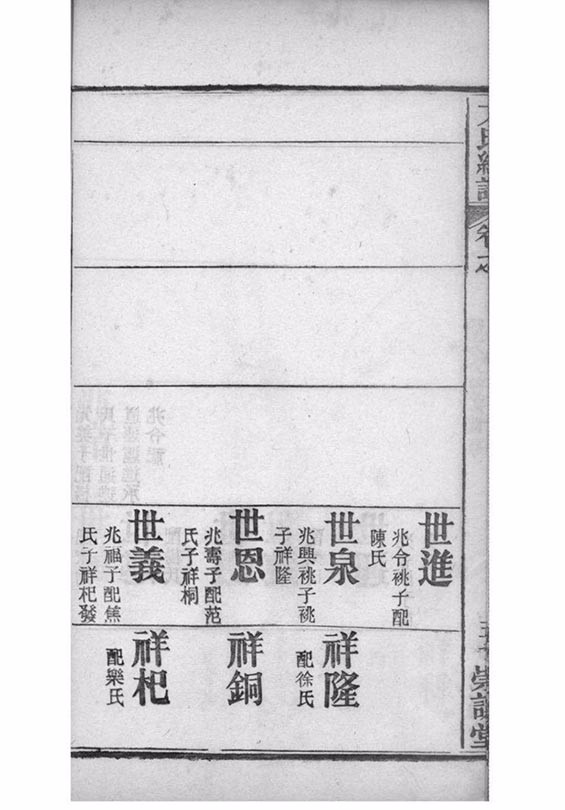 氏總譜
卷之
堂
世進
兆令祧子配
陳氏
世泉
兆興祧子祧
子祥隆
世恩
兆壽子配范
氏子祥桐
世義
兆福子配焦
氏子祥杞發
祥隆
配徐氏
祥銅
祥杞
配樂氏